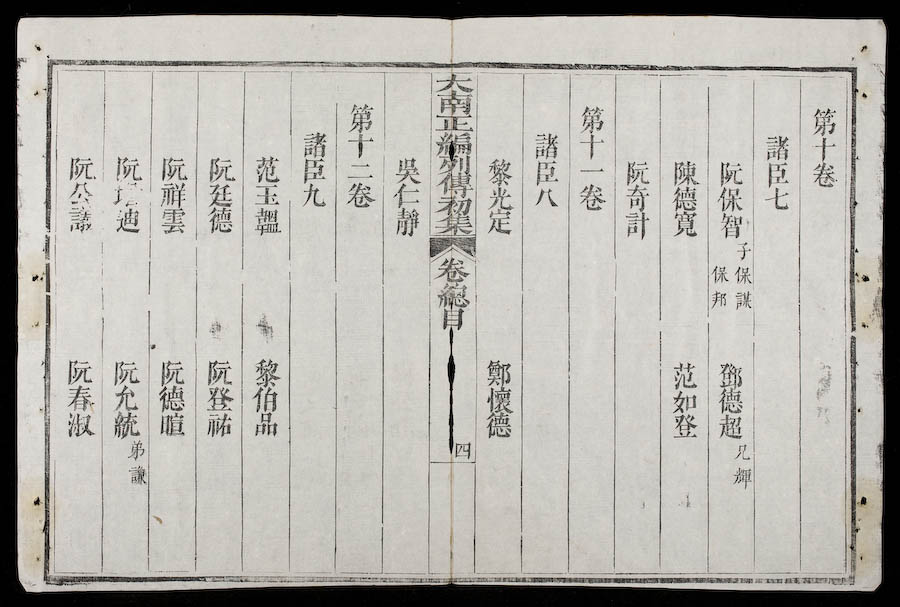 第十卷
諸臣七
阮保智 子保謀 保邦 鄧德超 兄輝
陳德寬 范如登
阮奇計
第十一卷
諸臣八
黎光定 鄭懷德
吳仁靜
大南正編列傳初集 卷總目 四
第十二卷
諸臣九
范玉韞 黎伯品
阮廷德 阮登祐
阮祥雲 阮德暄
阮 迪 阮允統 弟謙
阮公 阮春淑